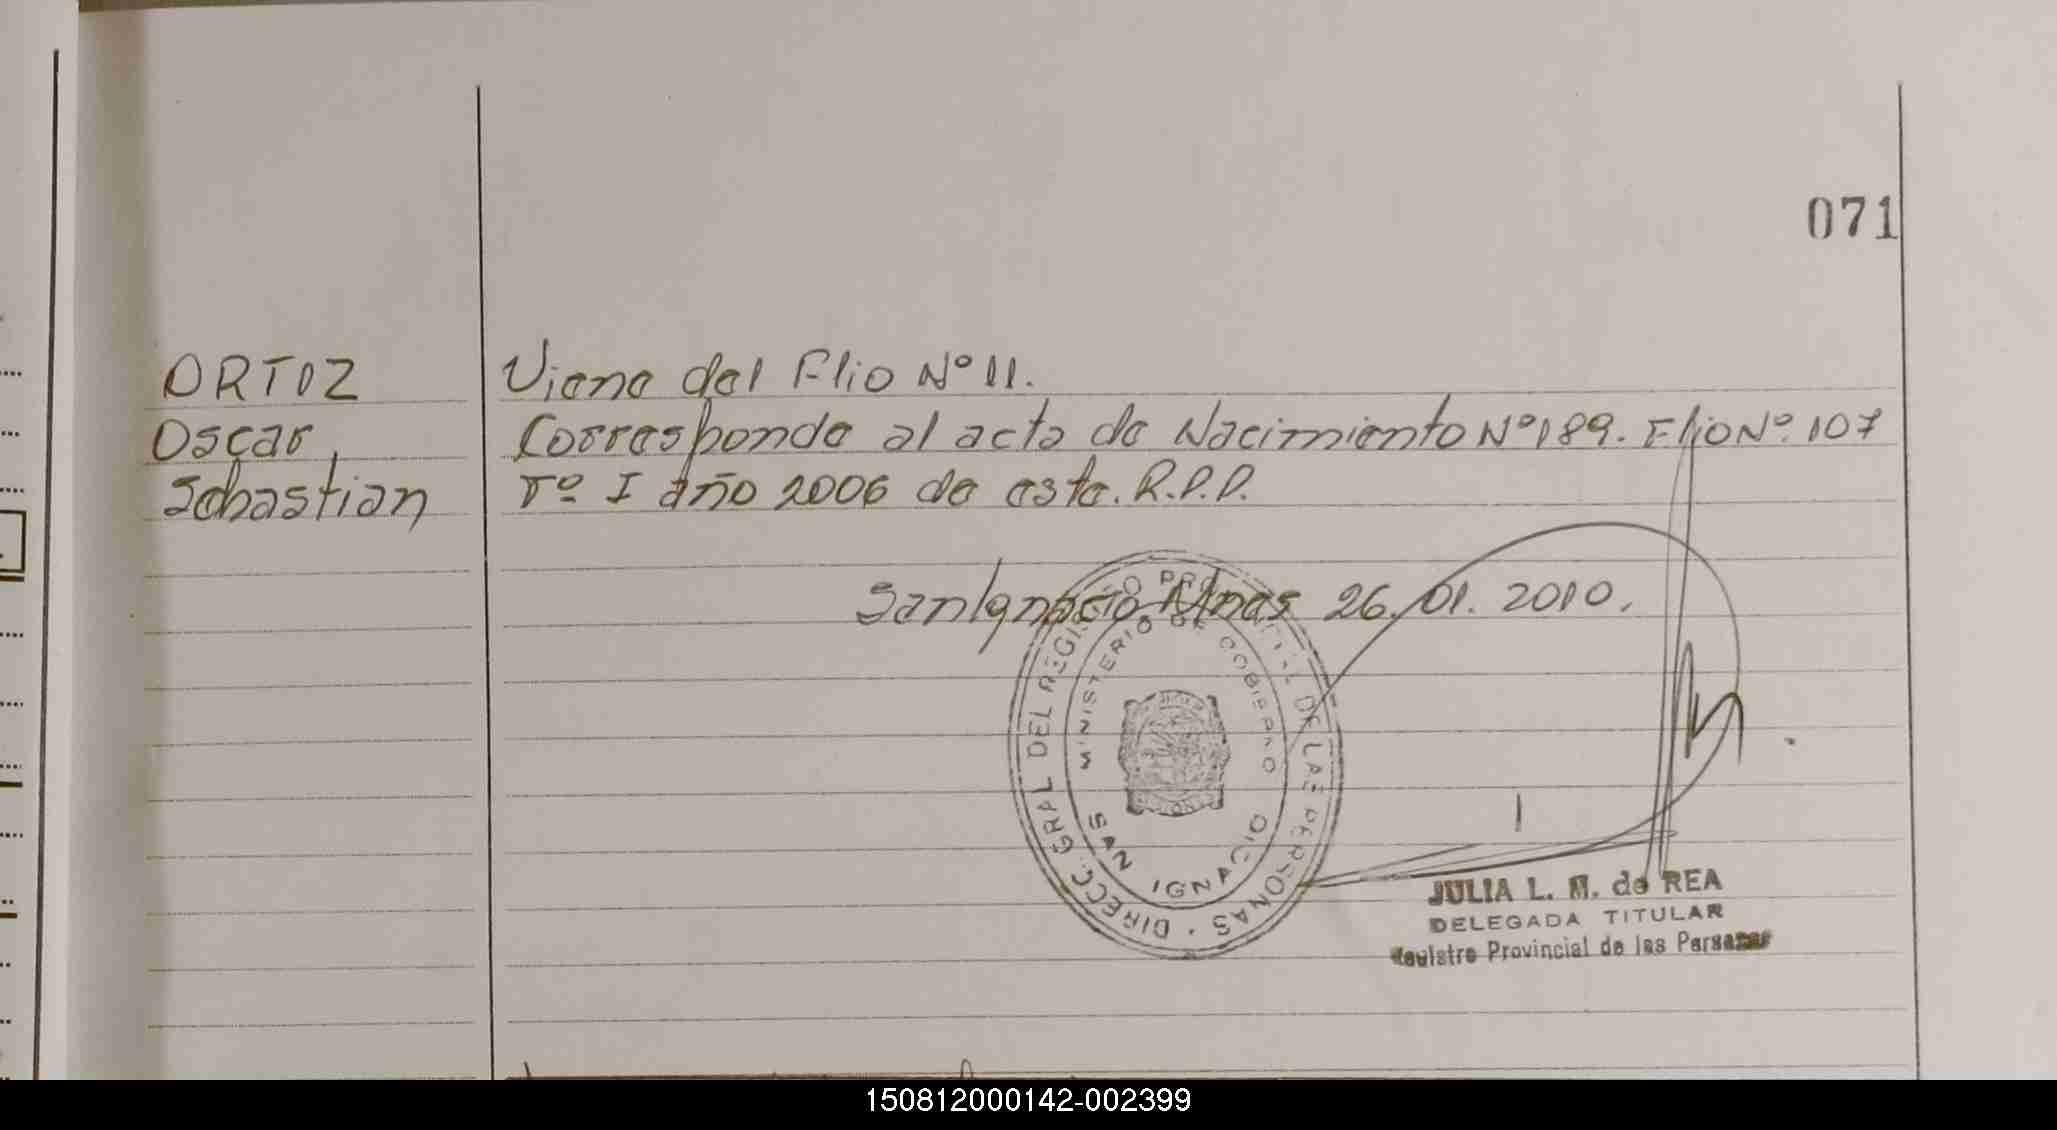 071
ORTIZ
Oscar
Sebastian
Viene del Flio Nº 11.
Corresponde al acta de Nacimiento Nº 189. Flio Nº. 107
Tº I año 2006 de este. R.P.P.
San Ignacio Mnes 26.01.2010.
DIRECC. GRAL DEL REGISTRO PROVINCIAL DE LAS PERSONAS
MINISTERIO DE GOBIERNO
SAN IGNACIO
JULIA L. M. de REA
DELEGADA TITULAR
Registro Provincial de las Personas
150812000142-002399